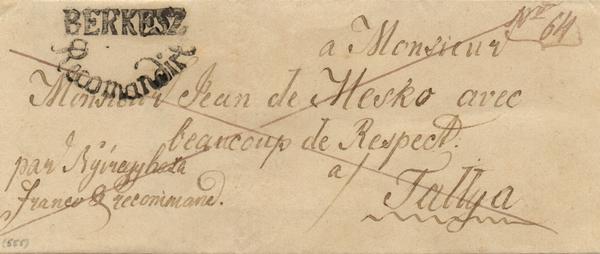 BERKESZ
Recomandirt
Nro 64
a Monsieur
Monsieur Jean de Mesko avec
beaucoup de Respect.
par Nyiregyhaza
Franco & recommand.
a
Tallya
(555)